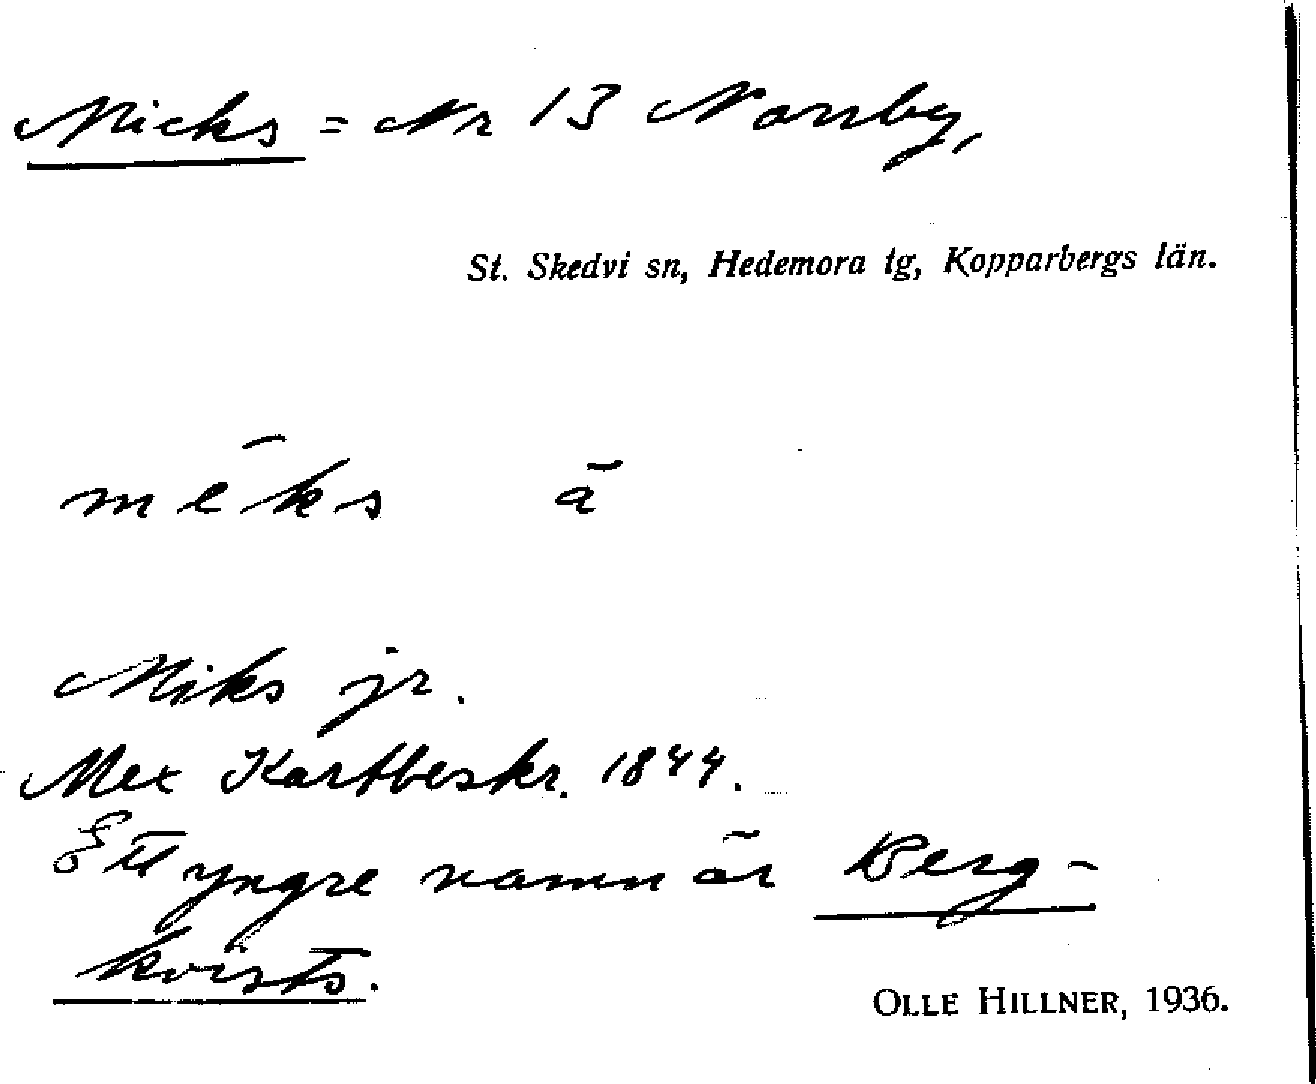 Micks = Nr 13 Norrby,
St. Skedvi sn, Hedemora tg, Kopparbergs län.
mēks ā
Miks jr.
Mex Kartbeskr. 1844.
Ett yngre namn är Berg-
kvists.
OLLE HILLNER, 1936.